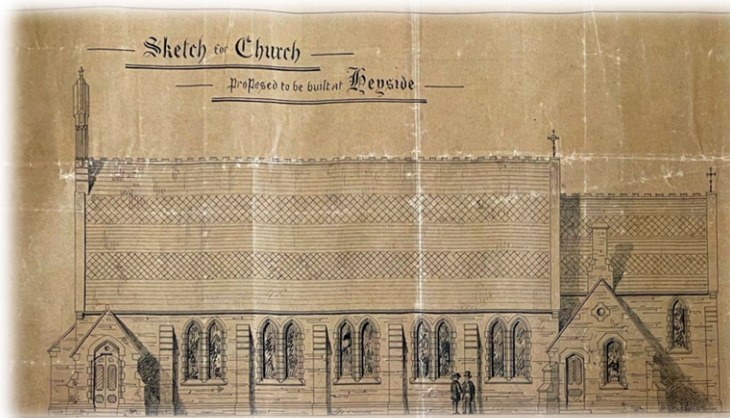 Sketch for Church
Proposed to be built at Heyside